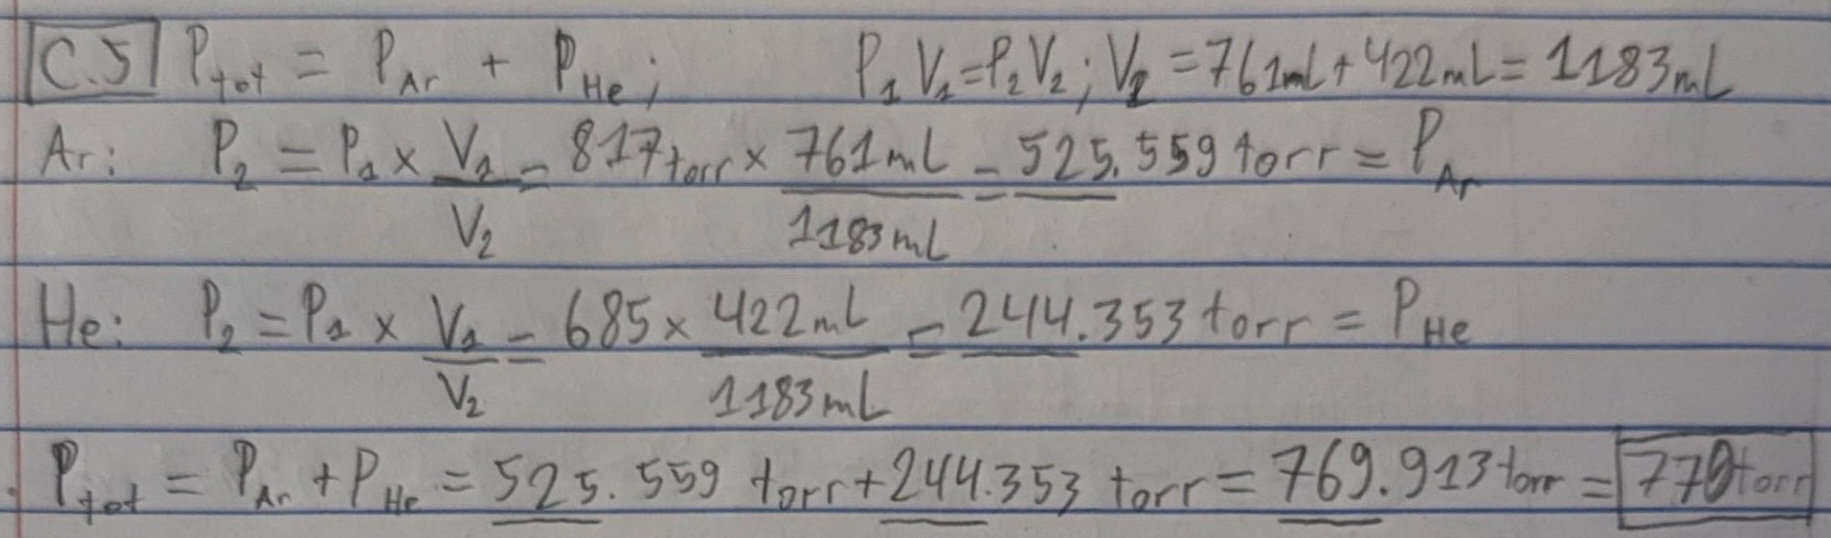 C.5 P_tot = P_Ar + P_He; P_1 V_1 = P_2 V_2; V_2 = 761mL + 422mL = 1183mL
Ar: P_2 = P_1 × V_1/V_2 = 817 torr × 761mL/1183mL = 525.559 torr = P_Ar
He: P_2 = P_1 × V_1/V_2 = 685 × 422mL/1183mL = 244.353 torr = P_He
P_tot = P_Ar + P_He = 525.559 torr + 244.353 torr = 769.913 torr = 770 torr